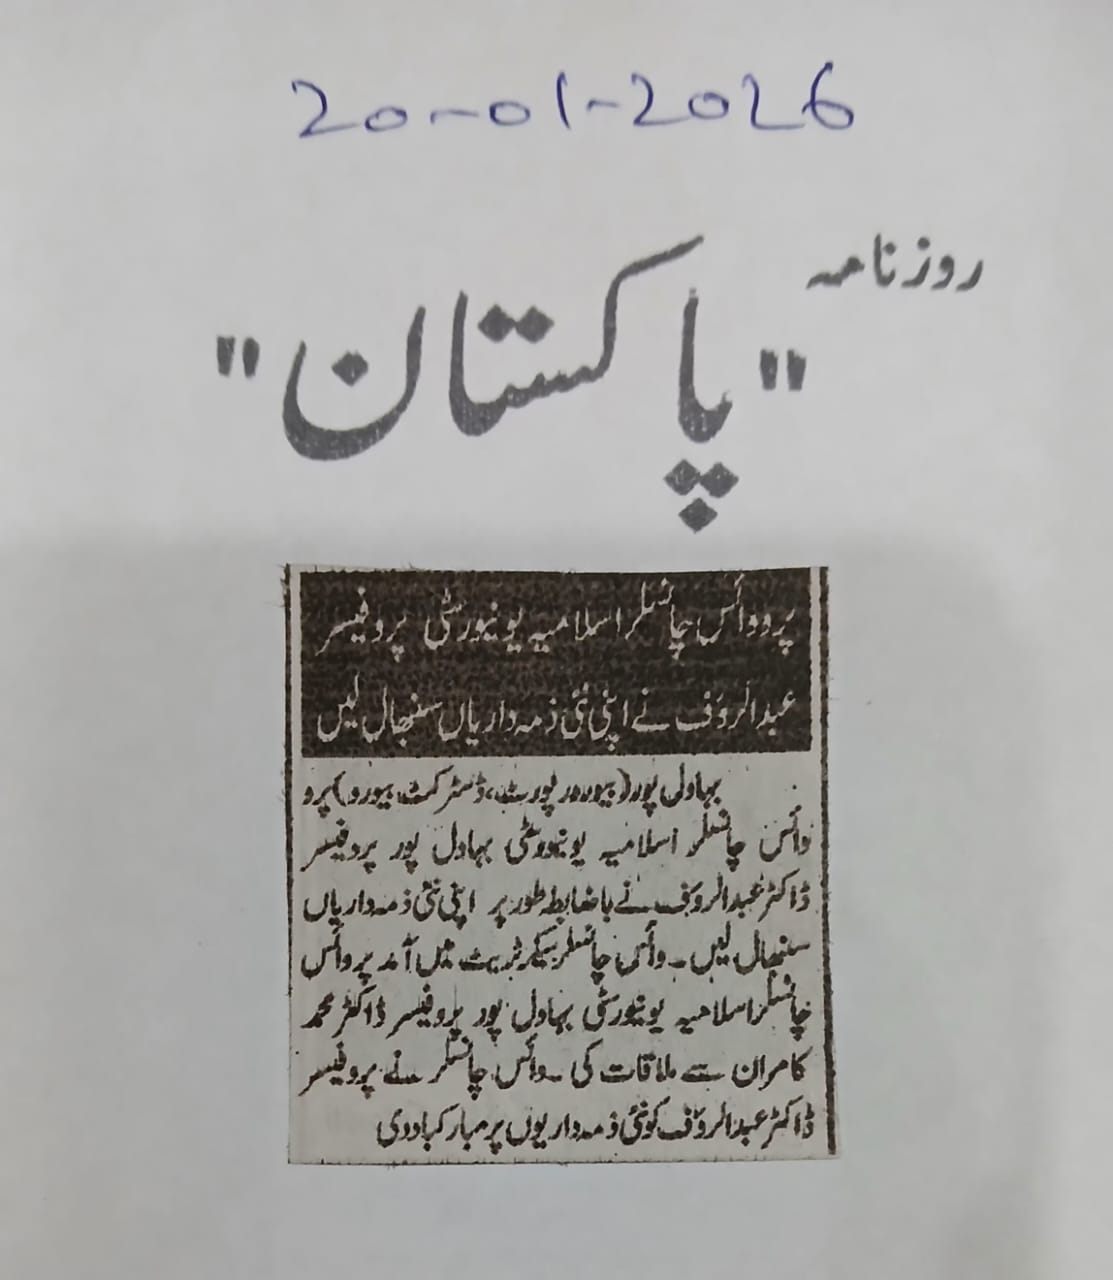 20-01-2026
روزنامہ
"پاکستان"
پرووائس چانسلر اسلامیہ یونیورسٹی پروفیسر
عبدالرؤف نے اپنی نئی ذمہ داریاں سنبھال لیں
بہاول پور(بیورورپورٹ، ڈسٹرکٹ بیورو)پرو
وائس چانسلر اسلامیہ یونیورسٹی بہاول پور پروفیسر
ڈاکٹر عبدالرؤف نے باضابطہ طور پر اپنی نئی ذمہ داریاں
سنبھال لیں۔ وائس چانسلر سیکرٹریٹ میں آمد پر وائس
چانسلر اسلامیہ یونیورسٹی بہاول پور پروفیسر ڈاکٹر محمد
کامران سے ملاقات کی۔ وائس چانسلر نے پروفیسر
ڈاکٹر عبدالرؤف کو نئی ذمہ داریوں پر مبارکباد دی